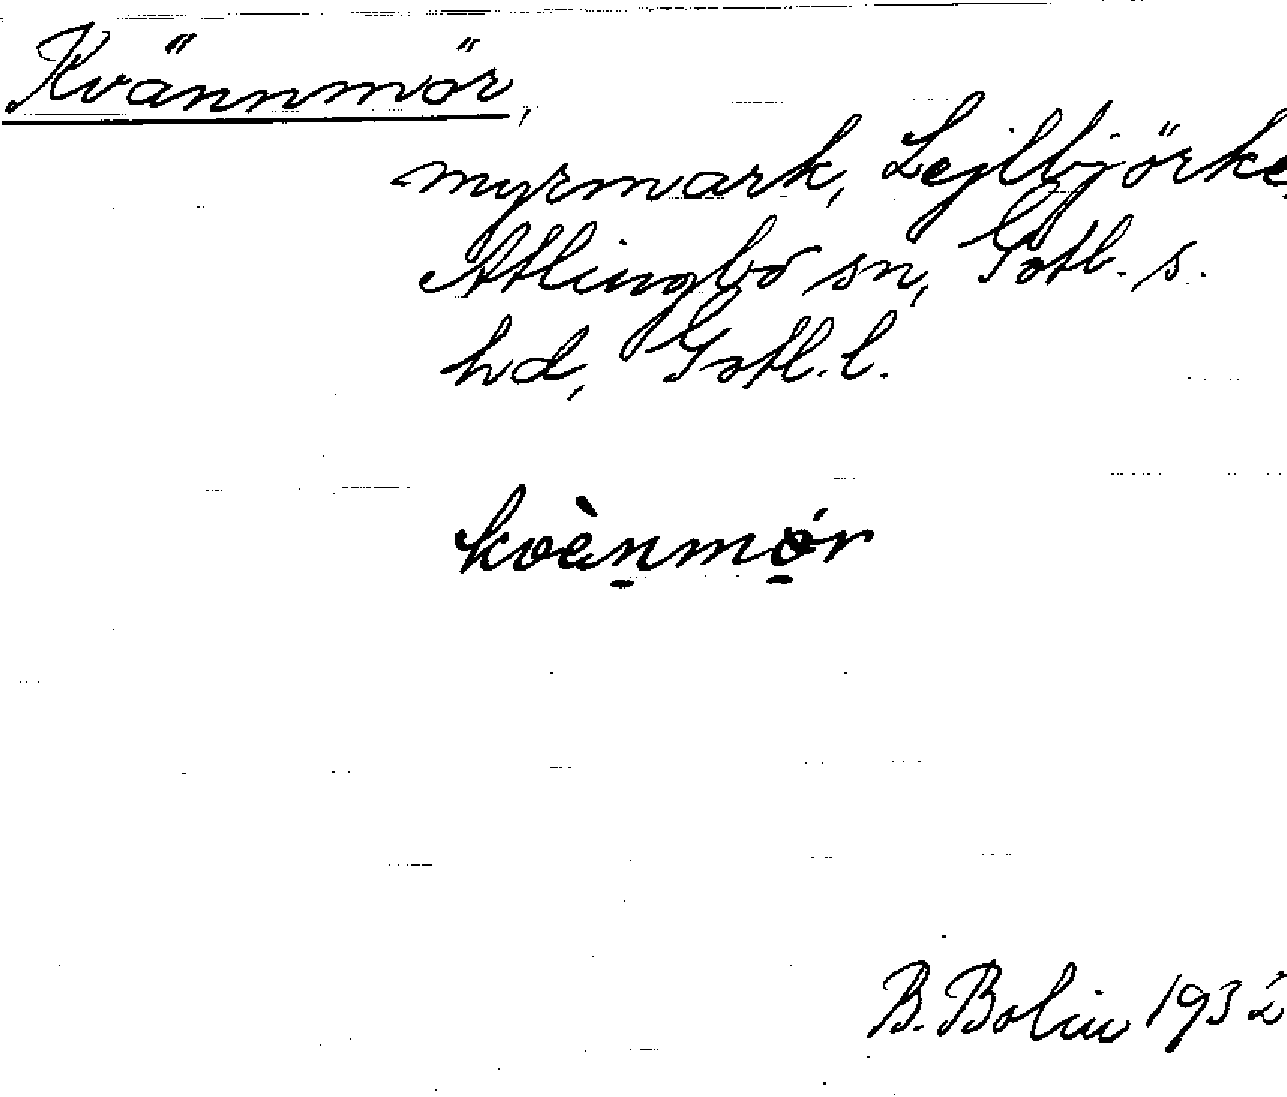 Kvännmör,
myrmark, Lejlbjörke,
Atlingbo sn, Gotl. s.
hd, Gotl. l.
kvän̠mø̠r
B. Bolin 1932